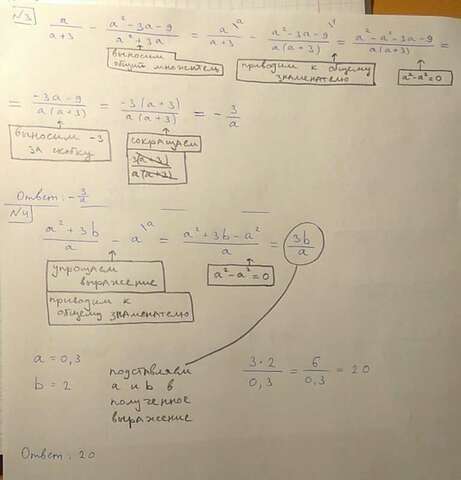 №3 a/(a+3) - (a²-3a-9)/(a²+3a) = a\a/(a+3) - (a²-3a-9)\1/(a(a+3)) = (a²-a²-3a-9)/(a(a+3)) =
выносим общий множитель
приводим к общему знаменателю
a²-a²=0
= (-3a-9)/(a(a+3)) = -3(a+3)/(a(a+3)) = -3/a
выносим -3 за скобку
сокращаем
3(a+3)/a(a+3)
Ответ: -3/a
№4
(a²+3b)/a - a\a = (a²+3b-a²)/a = 3b/a
упрощаем выражение
a²-a²=0
приводим к общему знаменателю
a=0,3
b=2
подставляем
a и b в
полученное
выражение
3·2/0,3 = 6/0,3 = 20
Ответ: 20